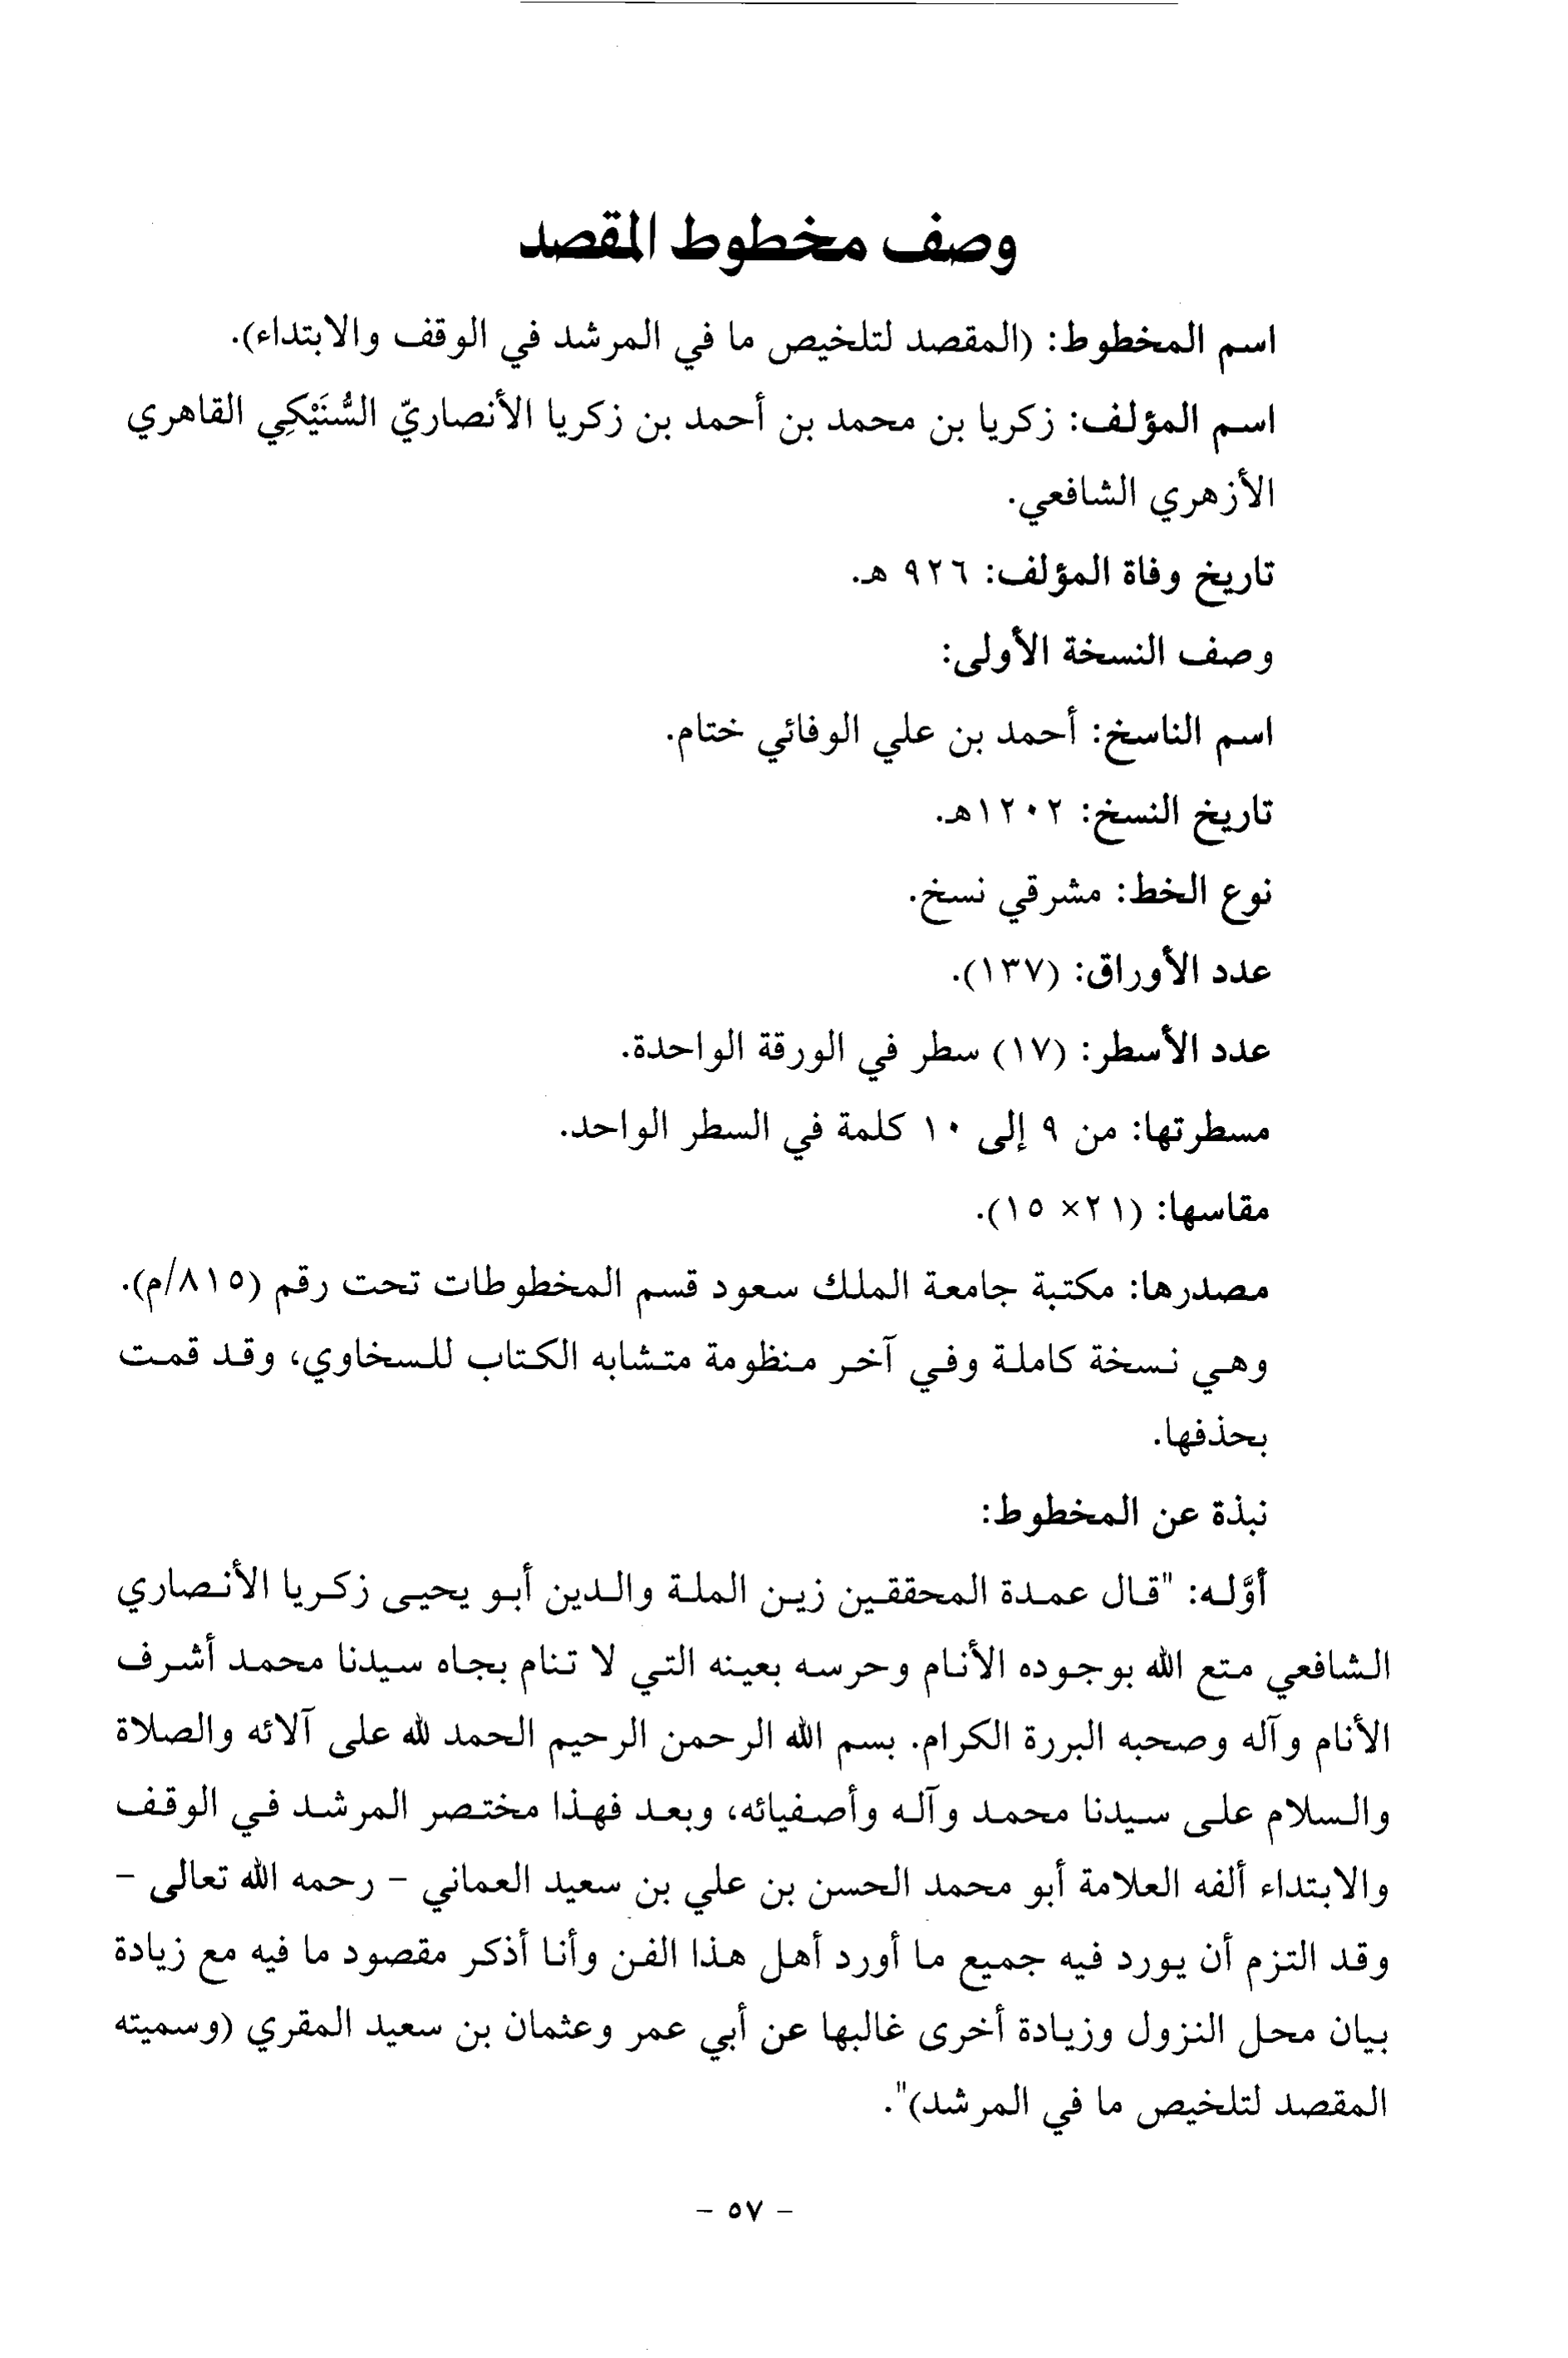 وصف مخطوط المقصد
اسم المخطوط: (المقصد لتلخيص ما في المرشد في الوقف والابتداء).
اسم المؤلف: زكريا بن محمد بن أحمد بن زكريا الأنصاريّ السُّنَيْكِي القاهري
الأزهري الشافعي.
تاريخ وفاة المؤلف: ٩٢٦ هـ.
وصف النسخة الأولى:
اسم الناسخ: أحمد بن علي الوفائي ختام.
تاريخ النسخ: ١٢٠٢هـ.
نوع الخط: مشرقي نسخ.
عدد الأوراق: (١٣٧).
عدد الأسطر: (١٧) سطر في الورقة الواحدة.
مسطرتها: من ٩ إلى ١٠ كلمة في السطر الواحد.
مقاسها: (٢١× ١٥).
مصدرها: مكتبة جامعة الملك سعود قسم المخطوطات تحت رقم (٨١٥/م).
وهي نسخة كاملة وفي آخر منظومة متشابه الكتاب للسخاوي، وقد قمت
بحذفها.
نبذة عن المخطوط:
أوَّله: "قال عمدة المحققين زين الملة والدين أبو يحيى زكريا الأنصاري
الشافعي متع الله بوجوده الأنام وحرسه بعينه التي لا تنام بجاه سيدنا محمد أشرف
الأنام وآله وصحبه البررة الكرام. بسم الله الرحمن الرحيم الحمد لله على آلائه والصلاة
والسلام على سيدنا محمد وآله وأصفيائه، وبعد فهذا مختصر المرشد في الوقف
والابتداء ألفه العلامة أبو محمد الحسن بن علي بن سعيد العماني - رحمه الله تعالى -
وقد التزم أن يورد فيه جميع ما أورد أهل هذا الفن وأنا أذكر مقصود ما فيه مع زيادة
بيان محل النزول وزيادة أخرى غالبها عن أبي عمر وعثمان بن سعيد المقري (وسميته
المقصد لتلخيص ما في المرشد)".
- ٥٧ -